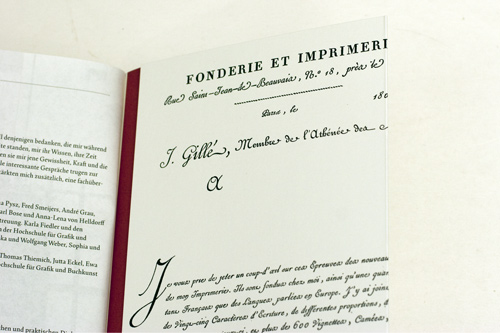 l denjenigen bedanken, die mir während
te standen, mir ihr Wissen, ihre Zeit
en sie mir jene Gewissheit, Kraft und die
le interessante Gespräche trugen zur
ärkten mich zusätzlich, eine fachüber-
a Pysz, Fred Smeijers, André Grau,
arl Bose und Anna-Lena von Helldorff
etreuung. Karla Fiedler und den
n der Hochschule für Grafik und
ska und Wolfgang Weber, Sophia und
Thomas Thiemich, Jutta Eckel, Ewa
ochschule für Grafik und Buchkunst
FONDERIE ET IMPRIMERI
Rue Saint-Jean-de-Beauvais, N.º 18, près le
Paris, le 180
J. Gillé, Membre de l'Athénée des
A
Je vous prie de jeter un coup-d'œil sur ces Épreuves des nouveau
de mon Imprimerie. Ils sont fondus chez moi, ainsi qu'une quan
tans Français que des Langues parlées en Europe. J'y ai joint
de vingt-cinq Caractères d'Écriture, de différentes proportions,
plus des 600 Vignettes, Camées,